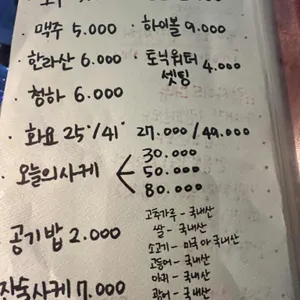 · 맥주 5.000 · 하이볼 9.000
· 한라산 6.000 · 토닉워터 셋팅 4.000
· 청하 6.000
· 화요 25°/41° 27.000 / 49.000
· 오늘의사케 < 30.000
50.000
80.000
공기밥 2.000
고춧가루 - 국내산
쌀 - 국내산
소고기 - 미국 아 국내산
고등어 - 국내산
아귀 - 국내산
광어 - 국내산
잔술사케 7.000